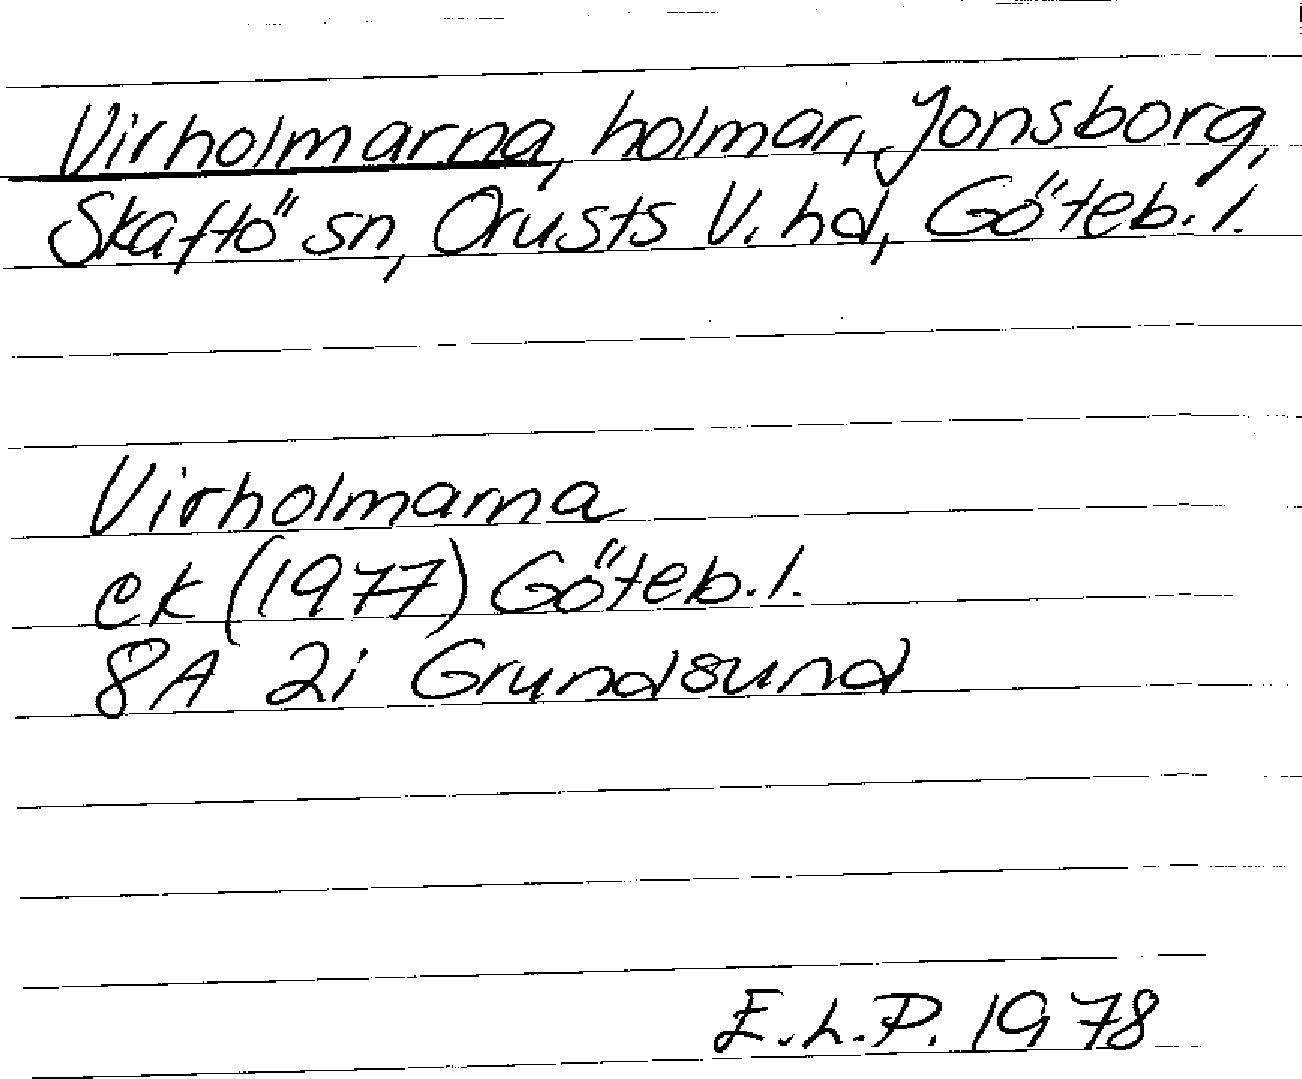 Virholmarna, holmar, Jonsborg,
Skaftö sn, Orusts V. hd, Göteb. l.
Virholmarna
ek (1977) Göteb. l.
8A 2i Grundsund
E.L.P. 1978